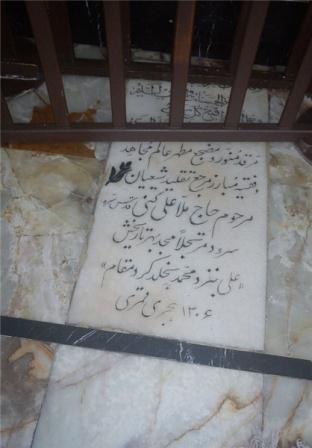 مرقد منور و مضجع مطهر عالم مجاهد
و فقیه مبارز مرجع تقلید شیعیان
مرحوم حاج ملا علی کنی قدس سره
سرود متجلا مجد بهر تاریخش
«علی بنزد محمد بخلد کرد مقام»
۱۳۰۶ هجری قمری